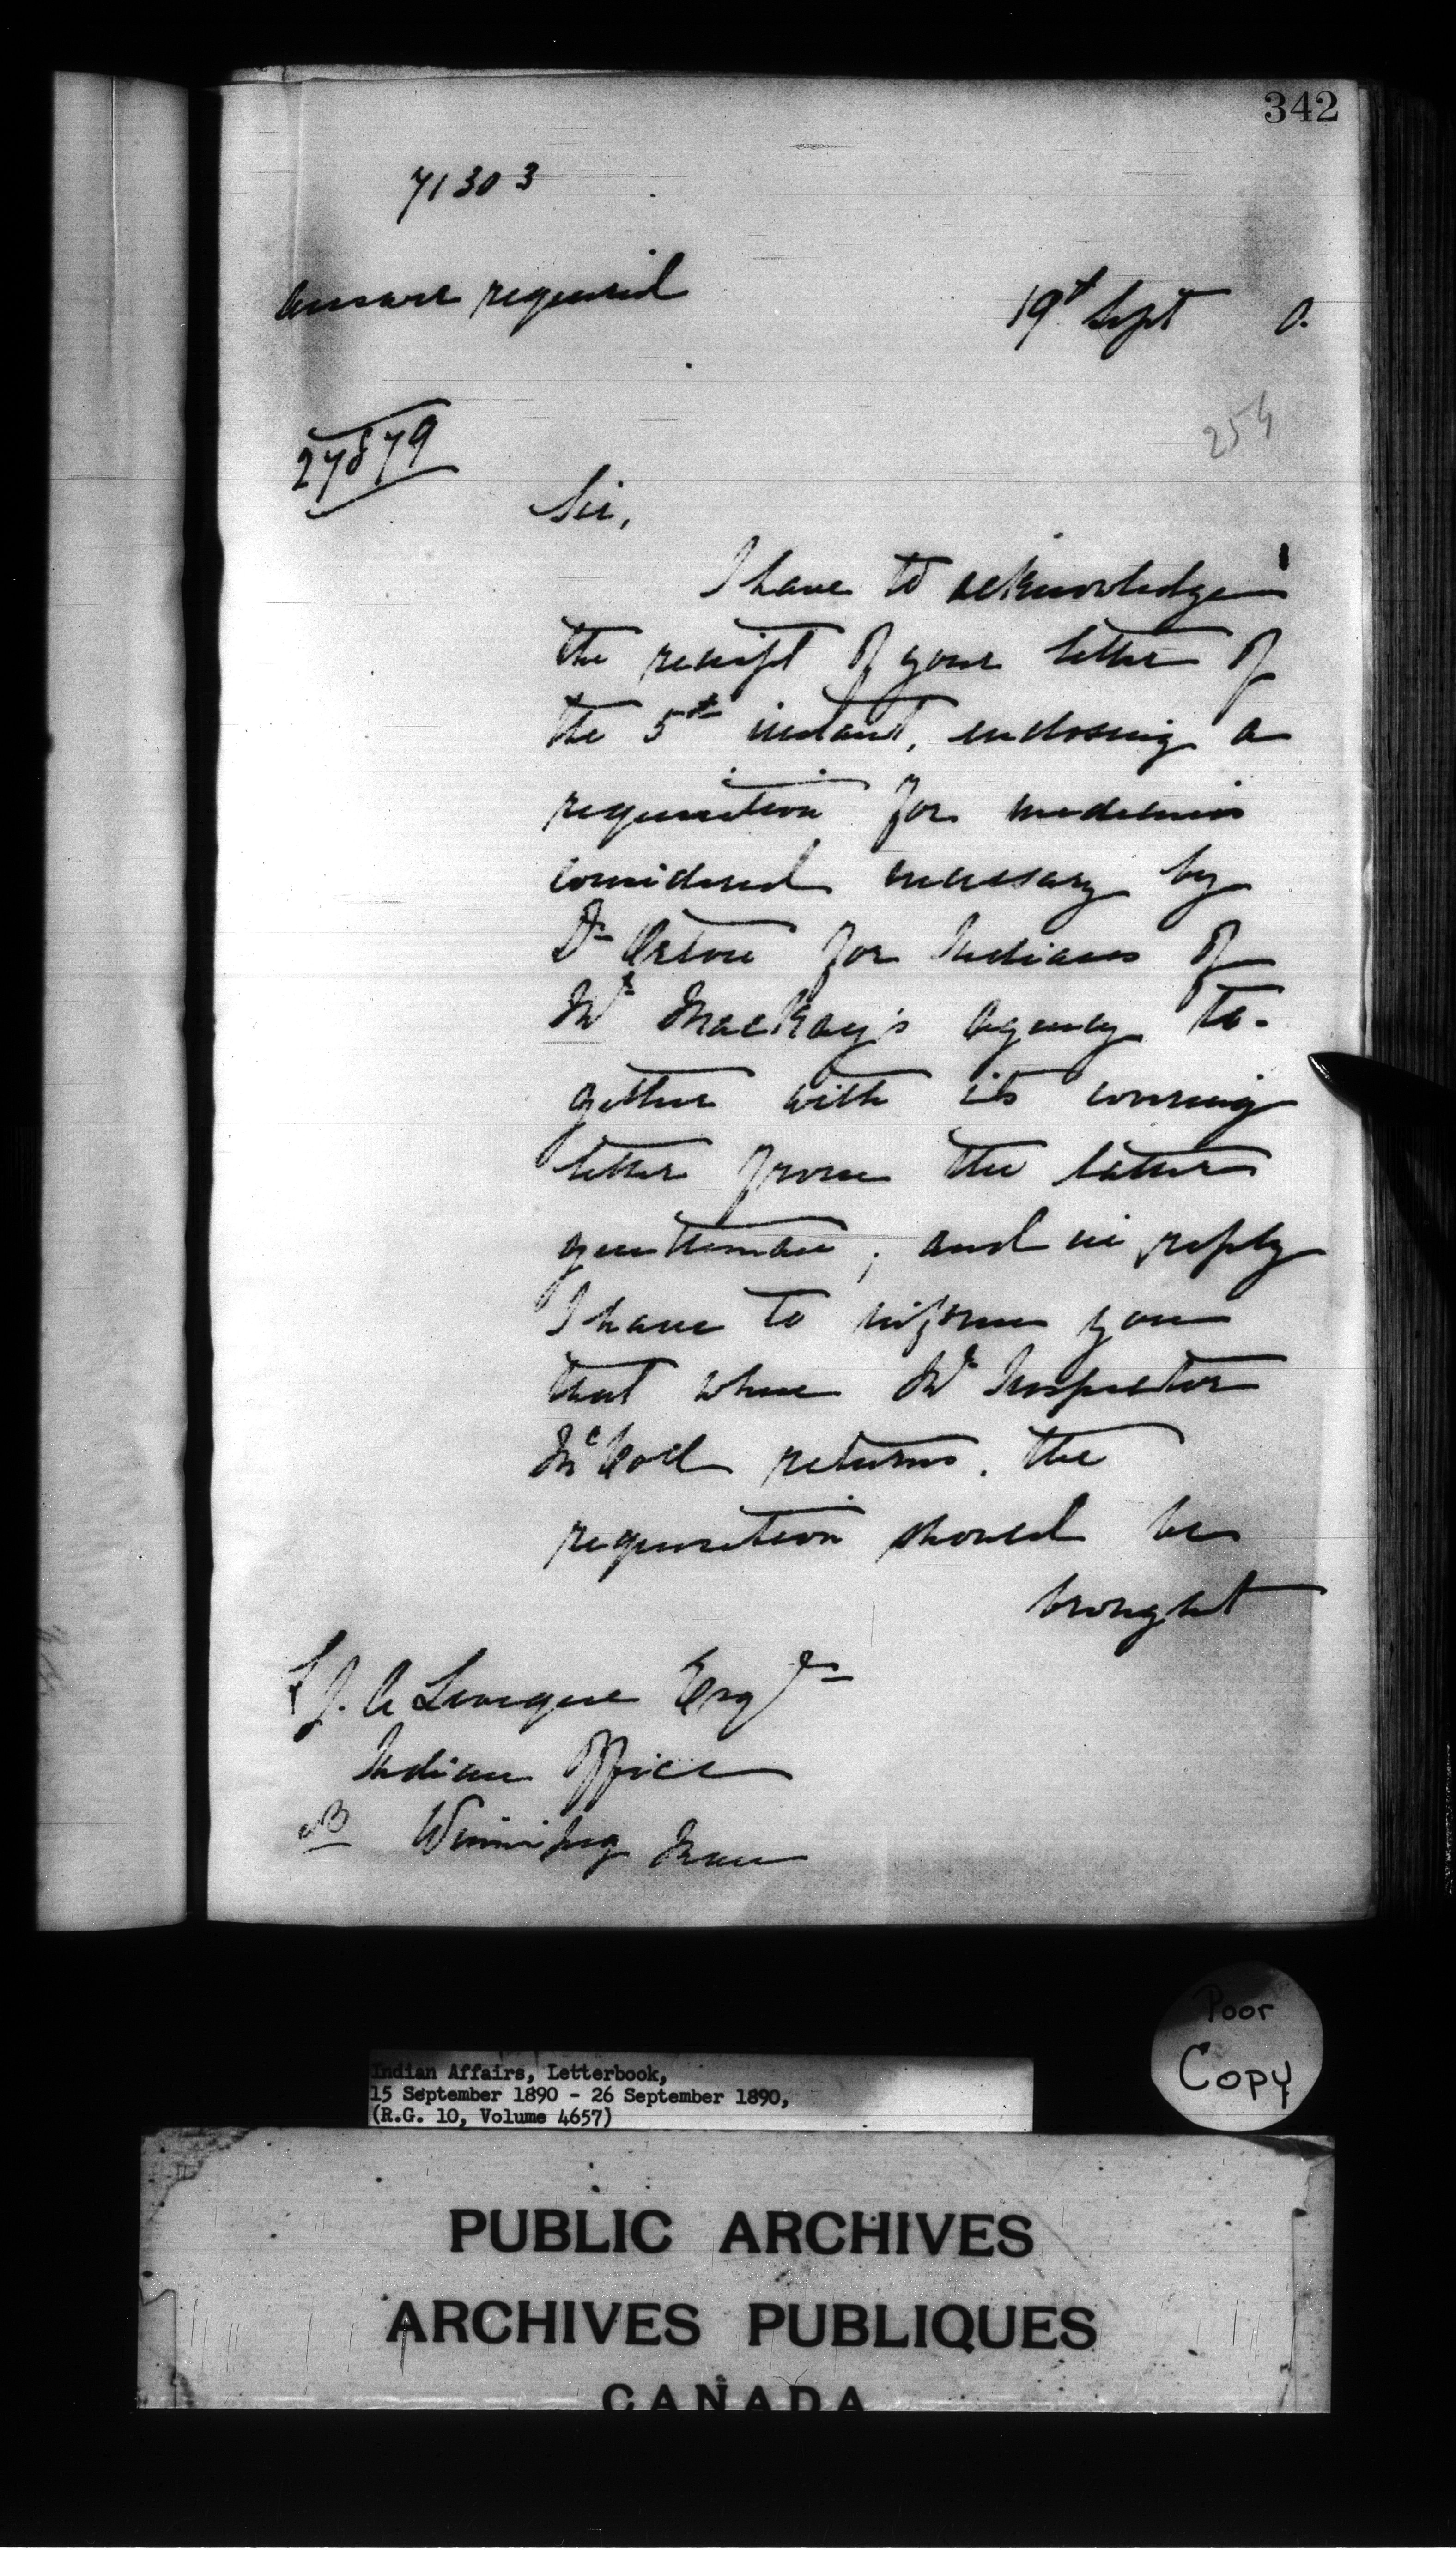 342
71303
answer required
19th Sept 0.
254
27879
Sir,
I have to acknowledge
the receipt of your letter of
the 5th instant, enclosing a
requisition for medicines
considered necessary by
Dr Orton for Indians of
Mr MacKay's Agency to-
gether with its covering
letter from the latter
gentleman; and in reply
I have to inform you
that when Mr Inspector
McColl returns, the
requisition should be
brought
J. A Leveque Esqre
Indian Office
Winnipeg Man
Poor
Copy
Indian Affairs, Letterbook,
15 September 1890 - 26 September 1890,
(R.G. 10, Volume 4657)
PUBLIC ARCHIVES
ARCHIVES PUBLIQUES
CANADA